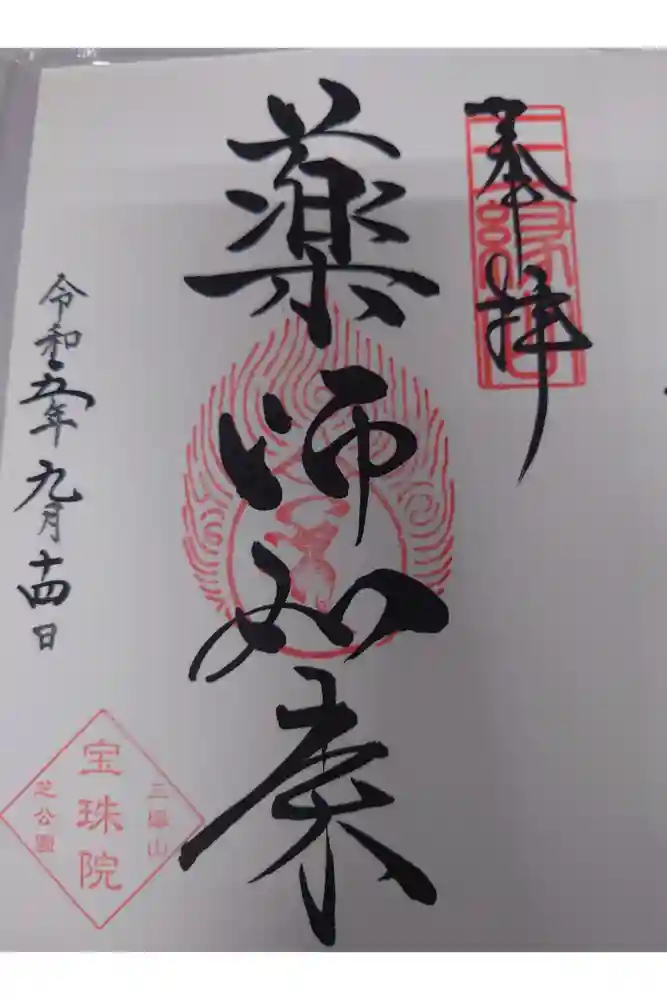 奉拝
三縁山
薬師如来
令和五年九月十四日
三縁山
宝珠院
芝公園